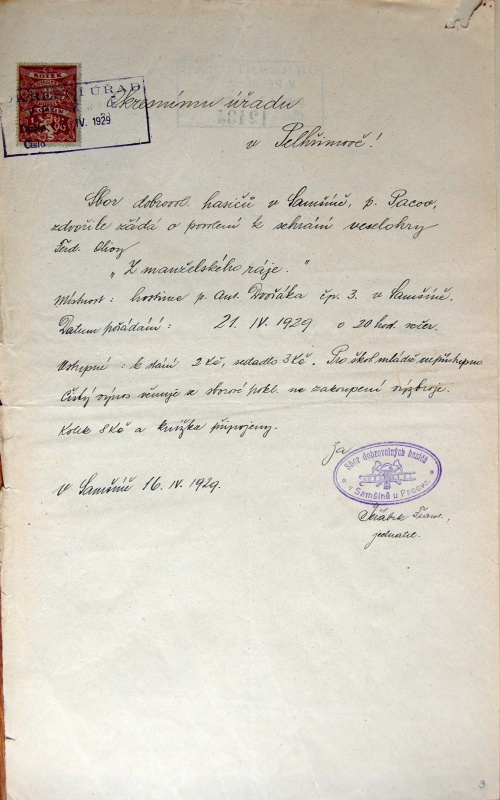 KOLEK
OKRESNÍ ÚŘAD
IV. 1929
Číslo
Okresnímu úřadu
v Pelhřimově!
Sbor dobrovol. hasičů v Samšíně, p. Pacov,
zdvořile žádá o povolení k sehrání veselohry
Ferd. Olivy
„Z manželského ráje."
Místnost: hostinec p. Ant. Dvořáka čp. 3. v Samšíně.
Datum pořádání: 21. IV. 1929 o 20 hod. večer.
Vstupné: k stání 2 Kč, sedadlo 3 Kč. Pro škol. mládež nepřístupno.
Čistý výnos věnuje se sborové pokl. na zakoupení výzbroje.
Kolek 8 Kč a knížka připojeny.
Za
Sbor dobrovolných hasičů
v Samšíně u Pacova
v Samšíně 16. IV. 1929.
Frant.,
jednatel.
3